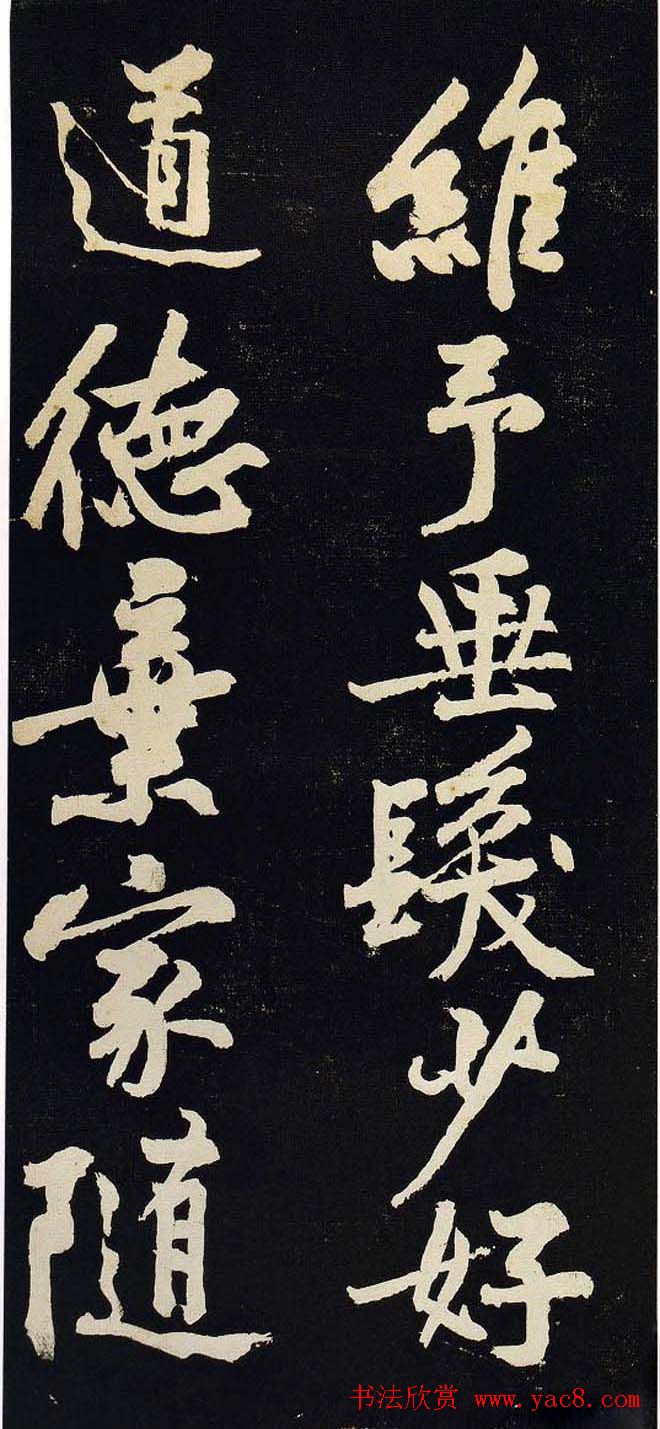 維予垂髮少好
道德棄家隨
书法欣赏 www.yac8.com